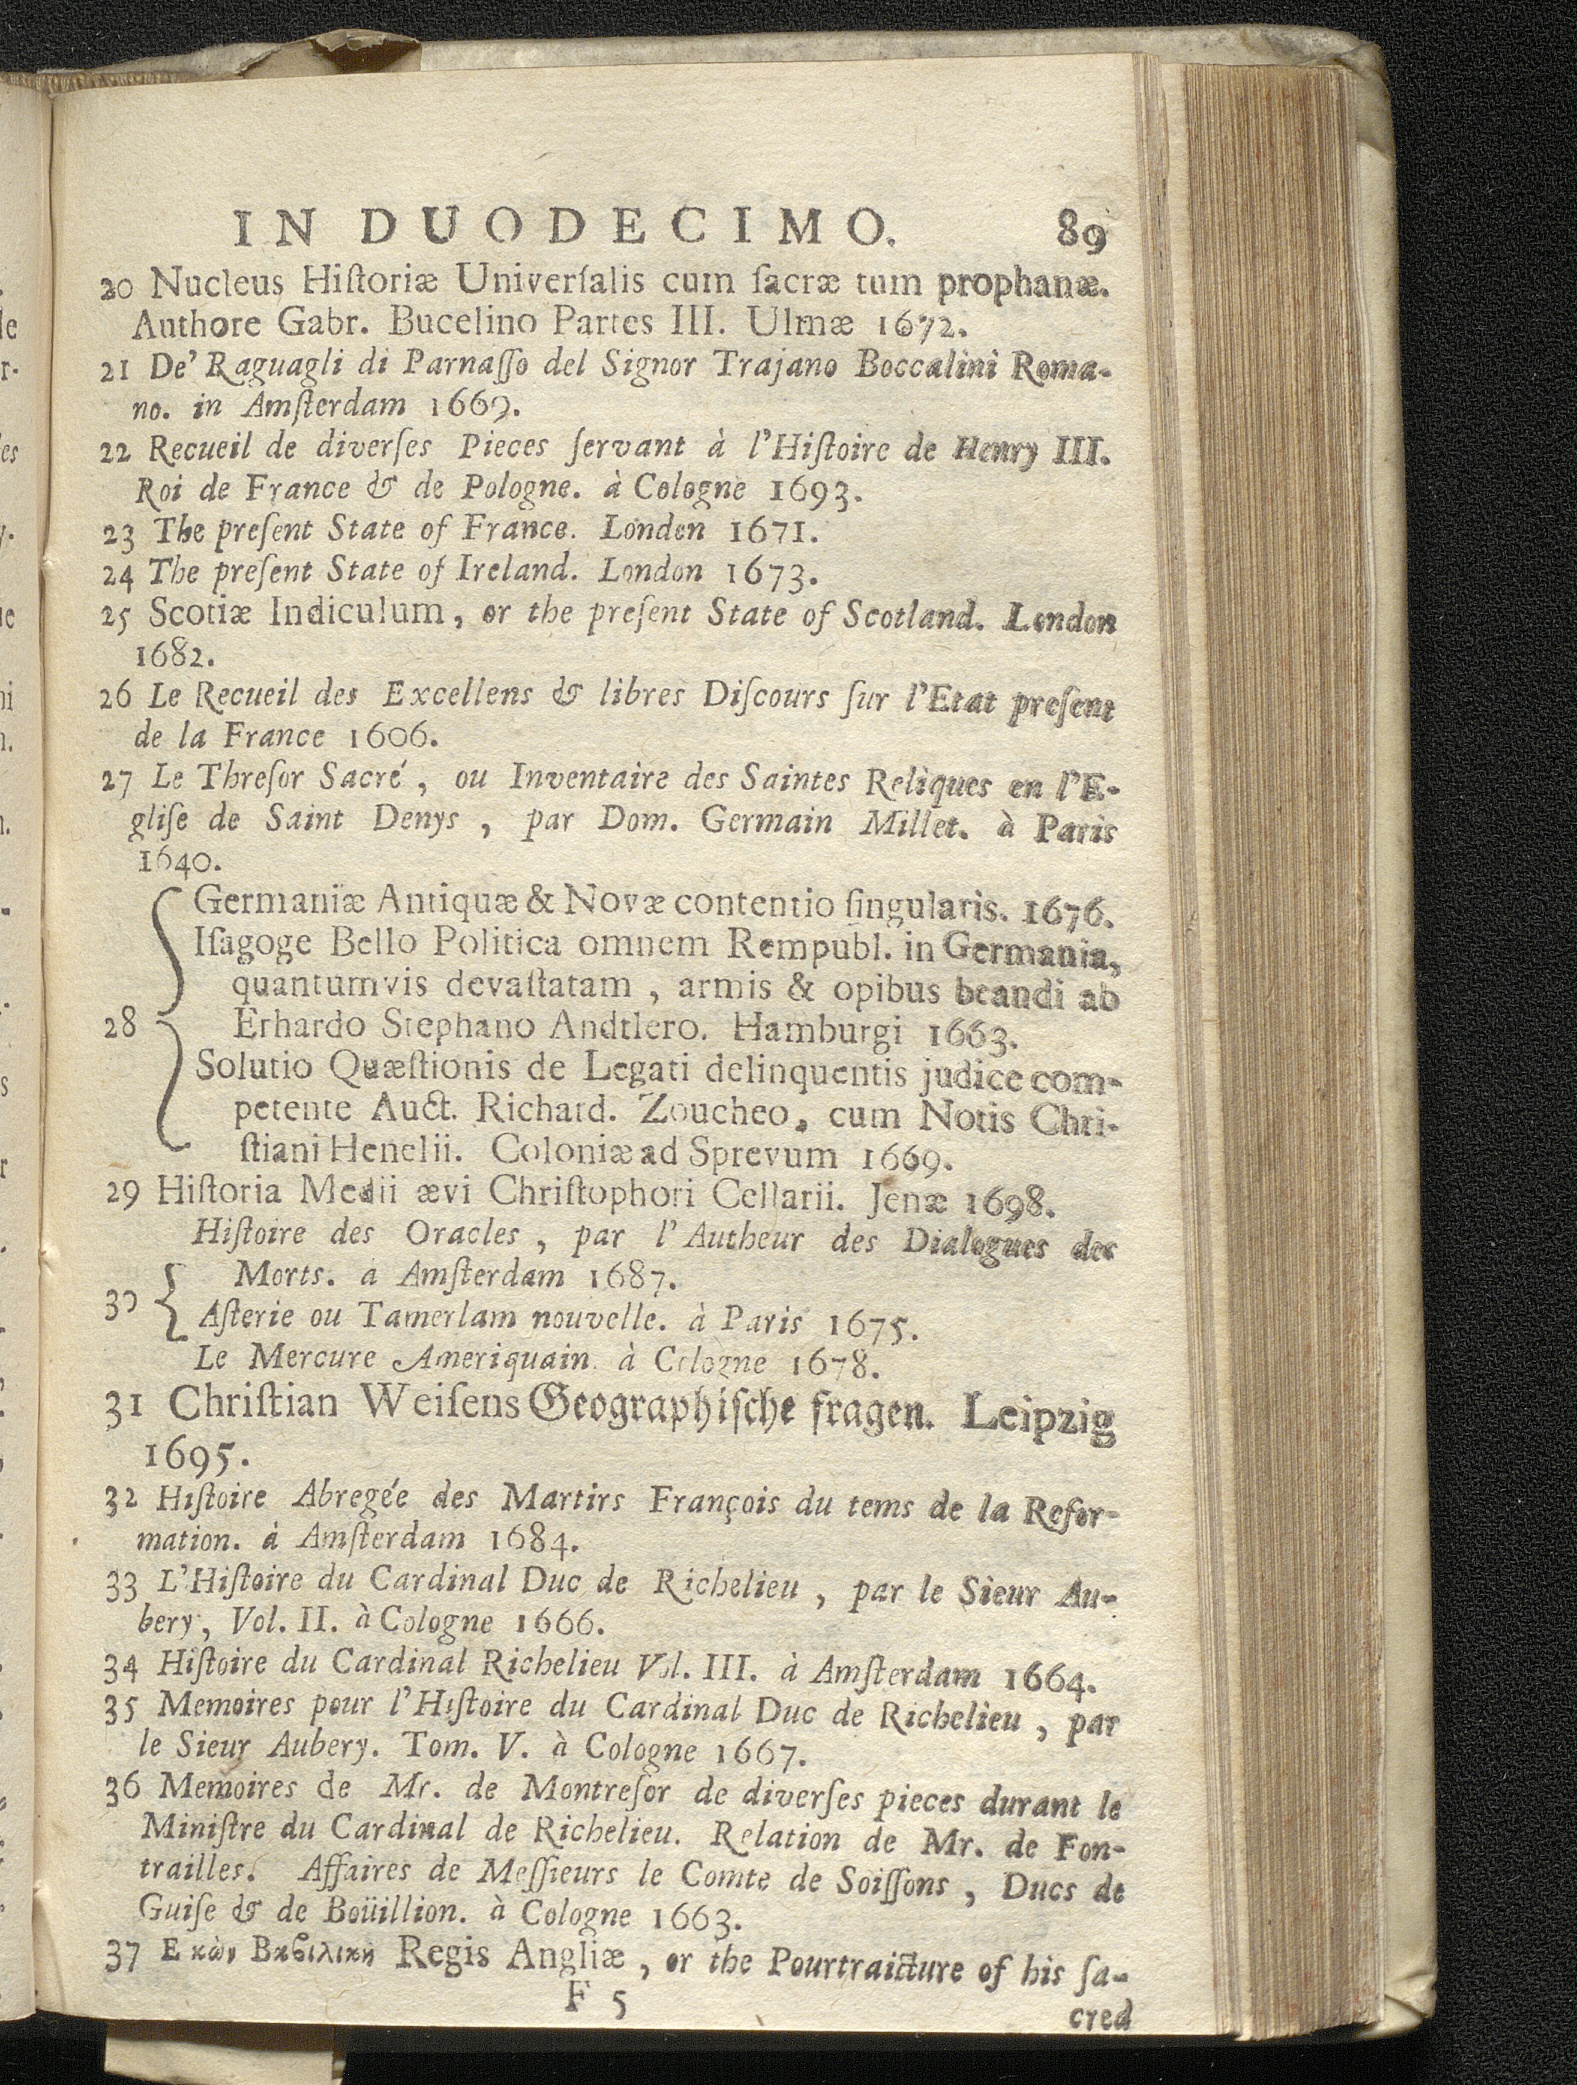 IN DUODECIMO. 89
20 Nucleus Hiſtoriæ Univerſalis cum ſacræ tum prophanæ.
Authore Gabr. Bucelino Partes III. Ulmæ 1672.
21 De' Raguagli di Parnaſſo del Signor Trajano Boccalini Roma-
no. in Amſterdam 1669.
22 Recueil de diverſes Pieces ſervant à l'Hiſtoire de Henry III.
Roi de France & de Pologne. à Cologne 1693.
23 The preſent State of France. London 1671.
24 The preſent State of Ireland. London 1673.
25 Scotiæ Indiculum, or the preſent State of Scotland. London
1682.
26 Le Recueil des Excellens & libres Diſcours ſur l'Etat preſent
de la France 1606.
27 Le Threſor Sacré, ou Inventaire des Saintes Reliques en l'E-
gliſe de Saint Denys, par Dom. Germain Millet. à Paris
1640.
Germaniæ Antiquæ & Novæ contentio ſingularis. 1676.
Iſagoge Bello Politica omnem Rempubl. in Germania,
quantumvis devaſtatam, armis & opibus beandi ab
28 Erhardo Stephano Andtlero. Hamburgi 1663.
Solutio Quæſtionis de Legati delinquentis judice com-
petente Auct. Richard. Zoucheo, cum Notis Chri-
ſtiani Henelii. Coloniæ ad Sprevum 1669.
29 Hiſtoria Medii ævi Chriſtophori Cellarii. Jenæ 1698.
Hiſtoire des Oracles, par l'Autheur des Dialogues des
Morts. a Amſterdam 1687.
30 Aſterie ou Tamerlam nouvelle. à Paris 1675.
Le Mercure Ameriquain. à Cologne 1678.
31 Chriſtian Weiſens Geographiſche fragen. Leipzig
1695.
32 Hiſtoire Abregée des Martirs François du tems de la Refor-
mation. à Amſterdam 1684.
33 L'Hiſtoire du Cardinal Duc de Richelieu, par le Sieur Au-
bery, Vol. II. à Cologne 1666.
34 Hiſtoire du Cardinal Richelieu Vol. III. à Amſterdam 1664.
35 Memoires pour l'Hiſtoire du Cardinal Duc de Richelieu, par
le Sieur Aubery. Tom. V. à Cologne 1667.
36 Memoires de Mr. de Montreſor de diverſes pieces durant le
Miniſtre du Cardinal de Richelieu. Relation de Mr. de Fon-
trailles. Affaires de Meſſieurs le Comte de Soiſſons, Ducs de
Guiſe & de Boüillion. à Cologne 1663.
37 Regis Angliæ, or the Pourtraicture of his ſa-
F 5
cred